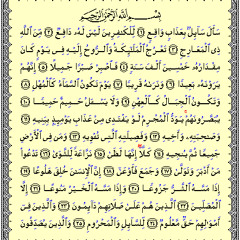 بِسْمِ اللَّهِ الرَّحْمَٰنِ الرَّحِيمِ
سَأَلَ سَآئِلٌۢ بِعَذَابٍ وَاقِعٍ ﴿١﴾ لِّلْكَٰفِرِينَ لَيْسَ لَهُۥ دَافِعٌ ﴿٢﴾ مِّنَ ٱللَّهِ
ذِى ٱلْمَعَارِجِ ﴿٣﴾ تَعْرُجُ ٱلْمَلَٰٓئِكَةُ وَٱلرُّوحُ إِلَيْهِ فِى يَوْمٍ كَانَ
مِقْدَارُهُۥ خَمْسِينَ أَلْفَ سَنَةٍ ﴿٤﴾ فَٱصْبِرْ صَبْرًا جَمِيلًا ﴿٥﴾ إِنَّهُمْ
يَرَوْنَهُۥ بَعِيدًا ﴿٦﴾ وَنَرَىٰهُ قَرِيبًا ﴿٧﴾ يَوْمَ تَكُونُ ٱلسَّمَآءُ كَٱلْمُهْلِ ﴿٨﴾
وَتَكُونُ ٱلْجِبَالُ كَٱلْعِهْنِ ﴿٩﴾ وَلَا يَسْـَٔلُ حَمِيمٌ حَمِيمًا ﴿١٠﴾
يُبَصَّرُونَهُمْ يَوَدُّ ٱلْمُجْرِمُ لَوْ يَفْتَدِى مِنْ عَذَابِ يَوْمِئِذٍۭ بِبَنِيهِ ﴿١١﴾
وَصَٰحِبَتِهِۦ وَأَخِيهِ ﴿١٢﴾ وَفَصِيلَتِهِ ٱلَّتِى تُـْٔوِيهِ ﴿١٣﴾ وَمَن فِى ٱلْأَرْضِ
جَمِيعًا ثُمَّ يُنجِيهِ ﴿١٤﴾ كَلَّآ إِنَّهَا لَظَىٰ ﴿١٥﴾ نَزَّاعَةً لِّلشَّوَىٰ ﴿١٦﴾ تَدْعُوا۟
مَنْ أَدْبَرَ وَتَوَلَّىٰ ﴿١٧﴾ وَجَمَعَ فَأَوْعَىٰٓ ﴿١٨﴾ إِنَّ ٱلْإِنسَٰنَ خُلِقَ هَلُوعًا ﴿١٩﴾
إِذَا مَسَّهُ ٱلشَّرُّ جَزُوعًا ﴿٢٠﴾ وَإِذَا مَسَّهُ ٱلْخَيْرُ مَنُوعًا ﴿٢١﴾ إِلَّا
ٱلْمُصَلِّينَ ﴿٢٢﴾ ٱلَّذِينَ هُمْ عَلَىٰ صَلَاتِهِمْ دَآئِمُونَ ﴿٢٣﴾ وَٱلَّذِينَ فِىٓ
أَمْوَٰلِهِمْ حَقٌّ مَّعْلُومٌ ﴿٢٤﴾ لِّلسَّآئِلِ وَٱلْمَحْرُومِ ﴿٢٥﴾ وَٱلَّذِينَ يُصَدِّقُونَ